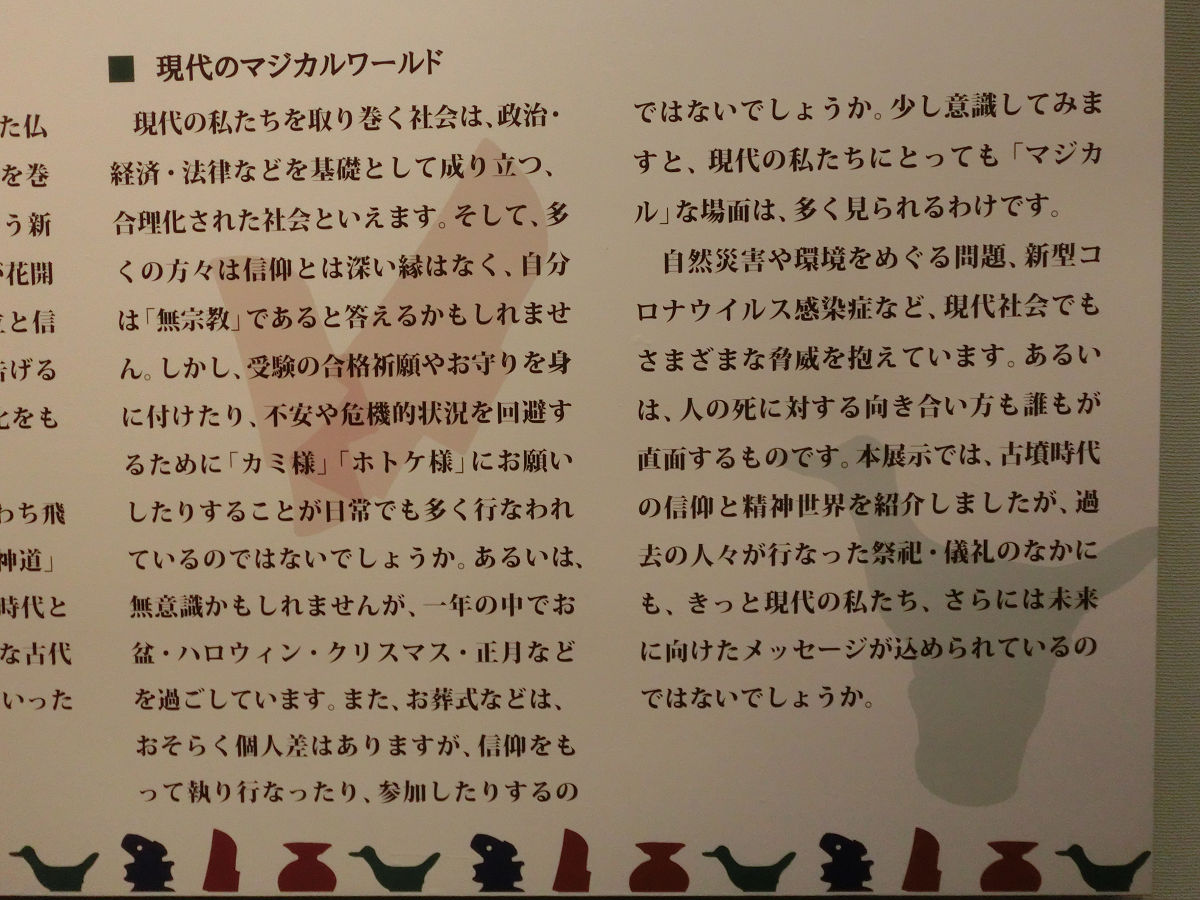 た仏
を巻
う新
花開
と信
げる
をも
わち飛
神道」
時代と
な古代
いった
■ 現代のマジカルワールド
現代の私たちを取り巻く社会は、政治・
経済・法律などを基礎として成り立つ、
合理化された社会といえます。そして、多
くの方々は信仰とは深い縁はなく、自分
は「無宗教」であると答えるかもしれませ
ん。しかし、受験の合格祈願やお守りを身
に付けたり、不安や危機的状況を回避す
るために「カミ様」「ホトケ様」にお願い
したりすることが日常でも多く行なわれ
ているのではないでしょうか。あるいは、
無意識かもしれませんが、一年の中でお
盆・ハロウィン・クリスマス・正月など
を過ごしています。また、お葬式などは、
おそらく個人差はありますが、信仰をも
って執り行なったり、参加したりするの
ではないでしょうか。少し意識してみま
すと、現代の私たちにとっても「マジカ
ル」な場面は、多く見られるわけです。
自然災害や環境をめぐる問題、新型コ
ロナウイルス感染症など、現代社会でも
さまざまな脅威を抱えています。あるい
は、人の死に対する向き合い方も誰もが
直面するものです。本展示では、古墳時代
の信仰と精神世界を紹介しましたが、過
去の人々が行なった祭祀・儀礼のなかに
も、きっと現代の私たち、さらには未来
に向けたメッセージが込められているの
ではないでしょうか。